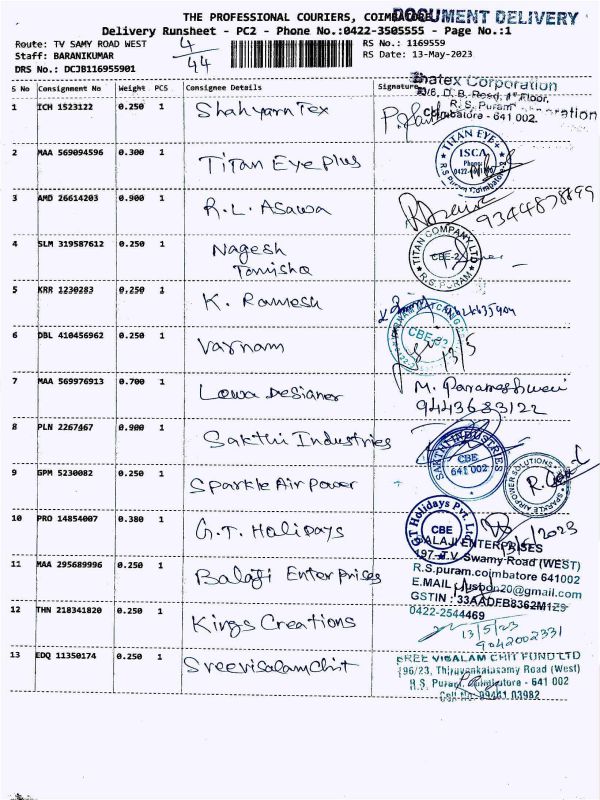 THE PROFESSIONAL COURIERS, COIMBATORE
DOCUMENT DELIVERY
Delivery Runsheet - PC2 - Phone No.:0422-3505555 - Page No.:1
Route: TV SAMY ROAD WEST
4/44
RS No.: 1169559
Staff: BARANIKUMAR
RS Date: 13-May-2023
DRS No.: DCJB116955901
S No Consignment No Weight PCS Consignee Details Signature
1 TCH 1523122 0.250 1 Shahyarn Tex
Corporation
R. S. Puram
Coimbatore - 641 002.
2 MAA 569094596 0.300 1 Titan Eye plus
TITAN EYE+
ISCA
Phone:
R.S Puram Coimbatore
3 AMD 26614203 0.900 1 R.L. Asawa
4 SLM 319587612 0.250 1 Nagesh
Tanishq
TITAN COMPANY LTD
CBE-2
R.S. PURAM
5 KRR 1230283 0.250 1 K. Ramesh
6 DBL 410456962 0.250 1 Varnam
13/5
7 MAA 569976913 0.700 1 Lowa Designer
M. Parameshwari
9443683122
8 PLN 2267467 0.900 1 Sakthi Industries
SAKTHI INDUSTRIES
CBE
641 002
9 GPM 5230082 0.250 1 Sparkle Air Power
SPARKLE AIRPOWER SOLUTIONS
10 PRO 14854007 0.380 1 G.T. Holidays
GT Holidays Pvt Ltd
CBE
13/5/2023
11 MAA 295689996 0.250 1 Balaji Enterprises
BALAJI ENTERPRISES
197- T.V. Swamy Road (WEST)
R.S.puram.coimbatore 641002
GSTIN : 33AADFB8362M1Z9
0422-2544469
12 THN 218341820 0.250 1 Kings Creations
13/5/23
9042002331
13 EDQ 11350174 0.250 1 Sreevisalam Chit
SREE VISALAM CHIT FUND LTD
(96/23, Thiruvenkatasamy Road (West)
R.S. Puram, Coimbatore - 641 002